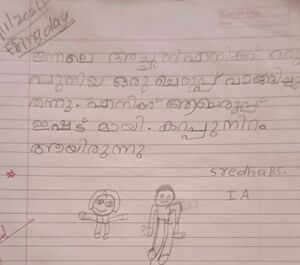 11/2024
ഇന്നലെ അച്ഛൻ എനിക്ക് ഒരു
പുതിയ ഒരു ചെരുപ്പ് വാങ്ങിച്ചു
തന്നു. എനിക്ക് ആ ചെരുപ്പ്
ഇഷ്ട മായി. കറുപ്പുനിറം
ആയിരുന്നു
sredha BS.
I A